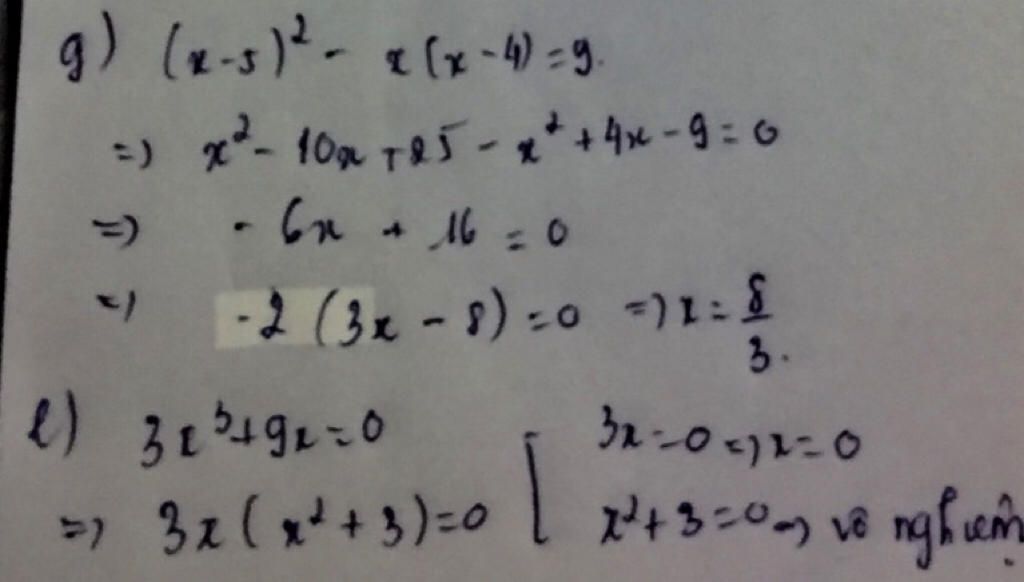 g) (x-5)² - x(x-4)=9.
=> x² - 10x + 25 - x² + 4x - 9 = 0
=> - 6x + 16 = 0
=> -2 (3x - 8) = 0 => x = 8/3.
l) 3x³+9x=0
=> 3x(x²+3)=0 [ 3x=0 => x=0
x²+3=0 => vô nghiệm